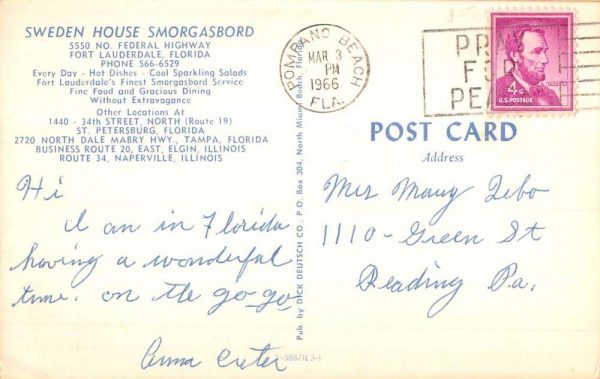 SWEDEN HOUSE SMORGASBORD
5550 NO. FEDERAL HIGHWAY
FORT LAUDERDALE, FLORIDA
PHONE 566-6529
Every Day - Hot Dishes - Cool Sparkling Salads
Fort Lauderdale's Finest Smorgasbord Service
Fine Food and Gracious Dining
Without Extravagance
Other Locations At
1440 - 34th STREET, NORTH (Route 19)
ST. PETERSBURG, FLORIDA
2720 NORTH DALE MABRY HWY., TAMPA, FLORIDA
BUSINESS ROUTE 20, EAST, ELGIN, ILLINOIS
ROUTE 34, NAPERVILLE, ILLINOIS
Hi
I an in Florida
having a wonderful
time. on the go go
Anna
Pub. by DICK DEUTSCH CO., P.O. Box 304, North Miami Beach, Florida
58871L3-1
POMPANO BEACH
MAR 3
PM
1966
FLA.
PRA
FOR
PEA
4¢
U.S. POSTAGE
POST CARD
Address
Mrs Mary Zebo
1110 - Green St
Reading Pa.